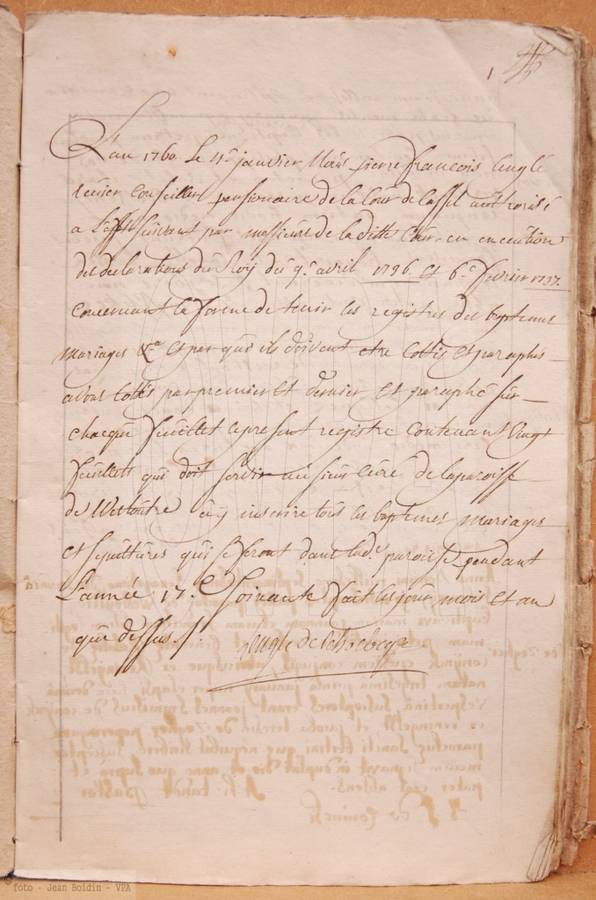 1
L'an 1760. Le 11e janvier Nous pierre francois Lenglé
Ecuier Conseiller pensionaire de la Cour de Cassel authorisé
a L'effet suivant par messieurs de la ditte Cour, en execution
des declarations du Roy du 9e avril 1736 et 6e fevrier 1737.
Concernant la forme de tenir les registres des baptemes
mariages &a et par qui ils doivent etre Cottés et paraphés
avons Cottés par premier et dernier et paraphé sur
chaque feuillet le present registre Contenant Vingt
feuillets qui doit servir au sieur Curé de la paroisse
de Wistoutre a y inscrire tous les baptemes mariages
et sepultures qui se feront dans lad.e paroisse pendant
L'année 17.C Soixante fait les jour mois et an
que dessus.
Lenglé de Schoebeque
©foto - Jean Boidin - VPA